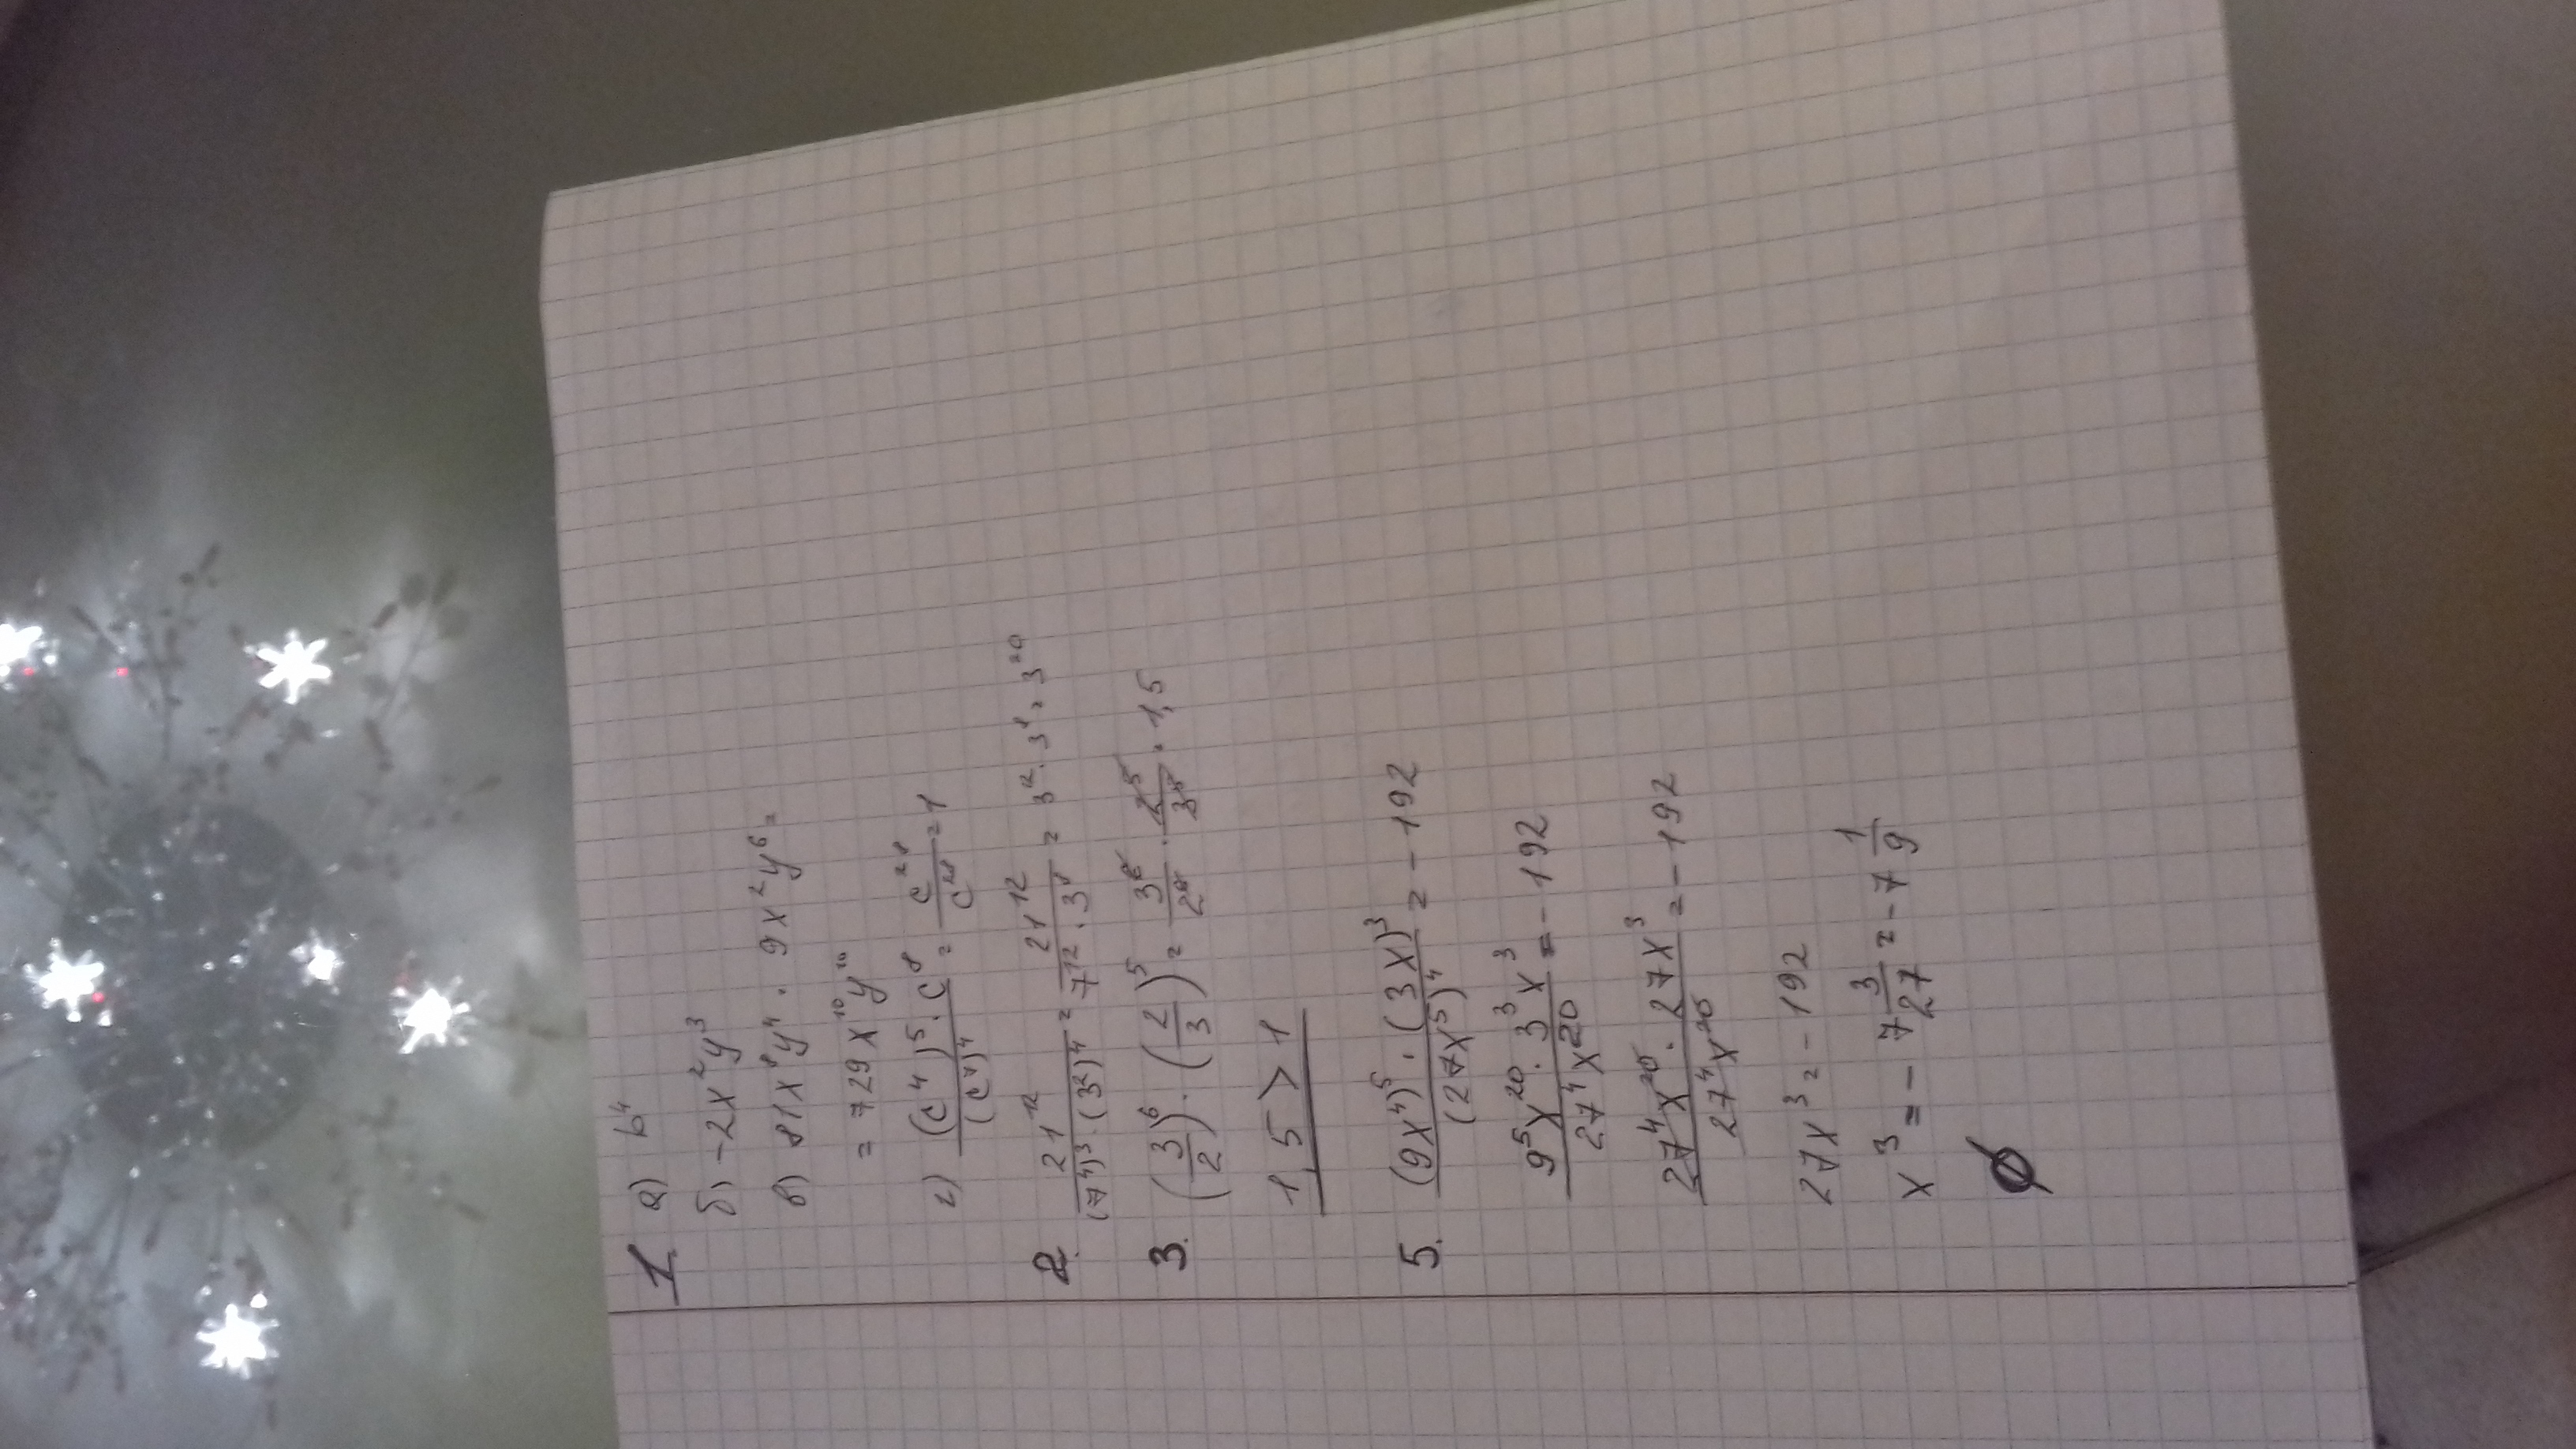 1. а) b⁴
б) -2x²y³
в) 81x⁸y⁴ · 9x²y⁶ =
= 729x¹⁰y¹⁰
г) \frac{(c⁴)⁵ · c⁸}{(c⁷)⁴} = \frac{c²⁸}{c²⁸} = 1
2. \frac{21¹²}{(7⁴)³ · (3²)⁴} = \frac{21¹²}{7¹² · 3⁸} = 3¹² · 3⁸ = 3²⁰
3. (\frac{3}{2})⁶ · (\frac{2}{3})⁵ = \frac{3⁶}{2⁶} · \frac{2⁵}{3⁵} = 1,5
1,5 > 1
5. \frac{(9x⁴)⁵ · (3x)³}{(27x⁵)⁴} = -192
\frac{9⁵x²⁰ · 3³x³}{27⁴x²⁰} = -192
\frac{27⁴x²⁰ · 27x³}{27⁴x²⁰} = -192
27x³ = -192
x³ = -7\frac{3}{27} = -7\frac{1}{9}
∅